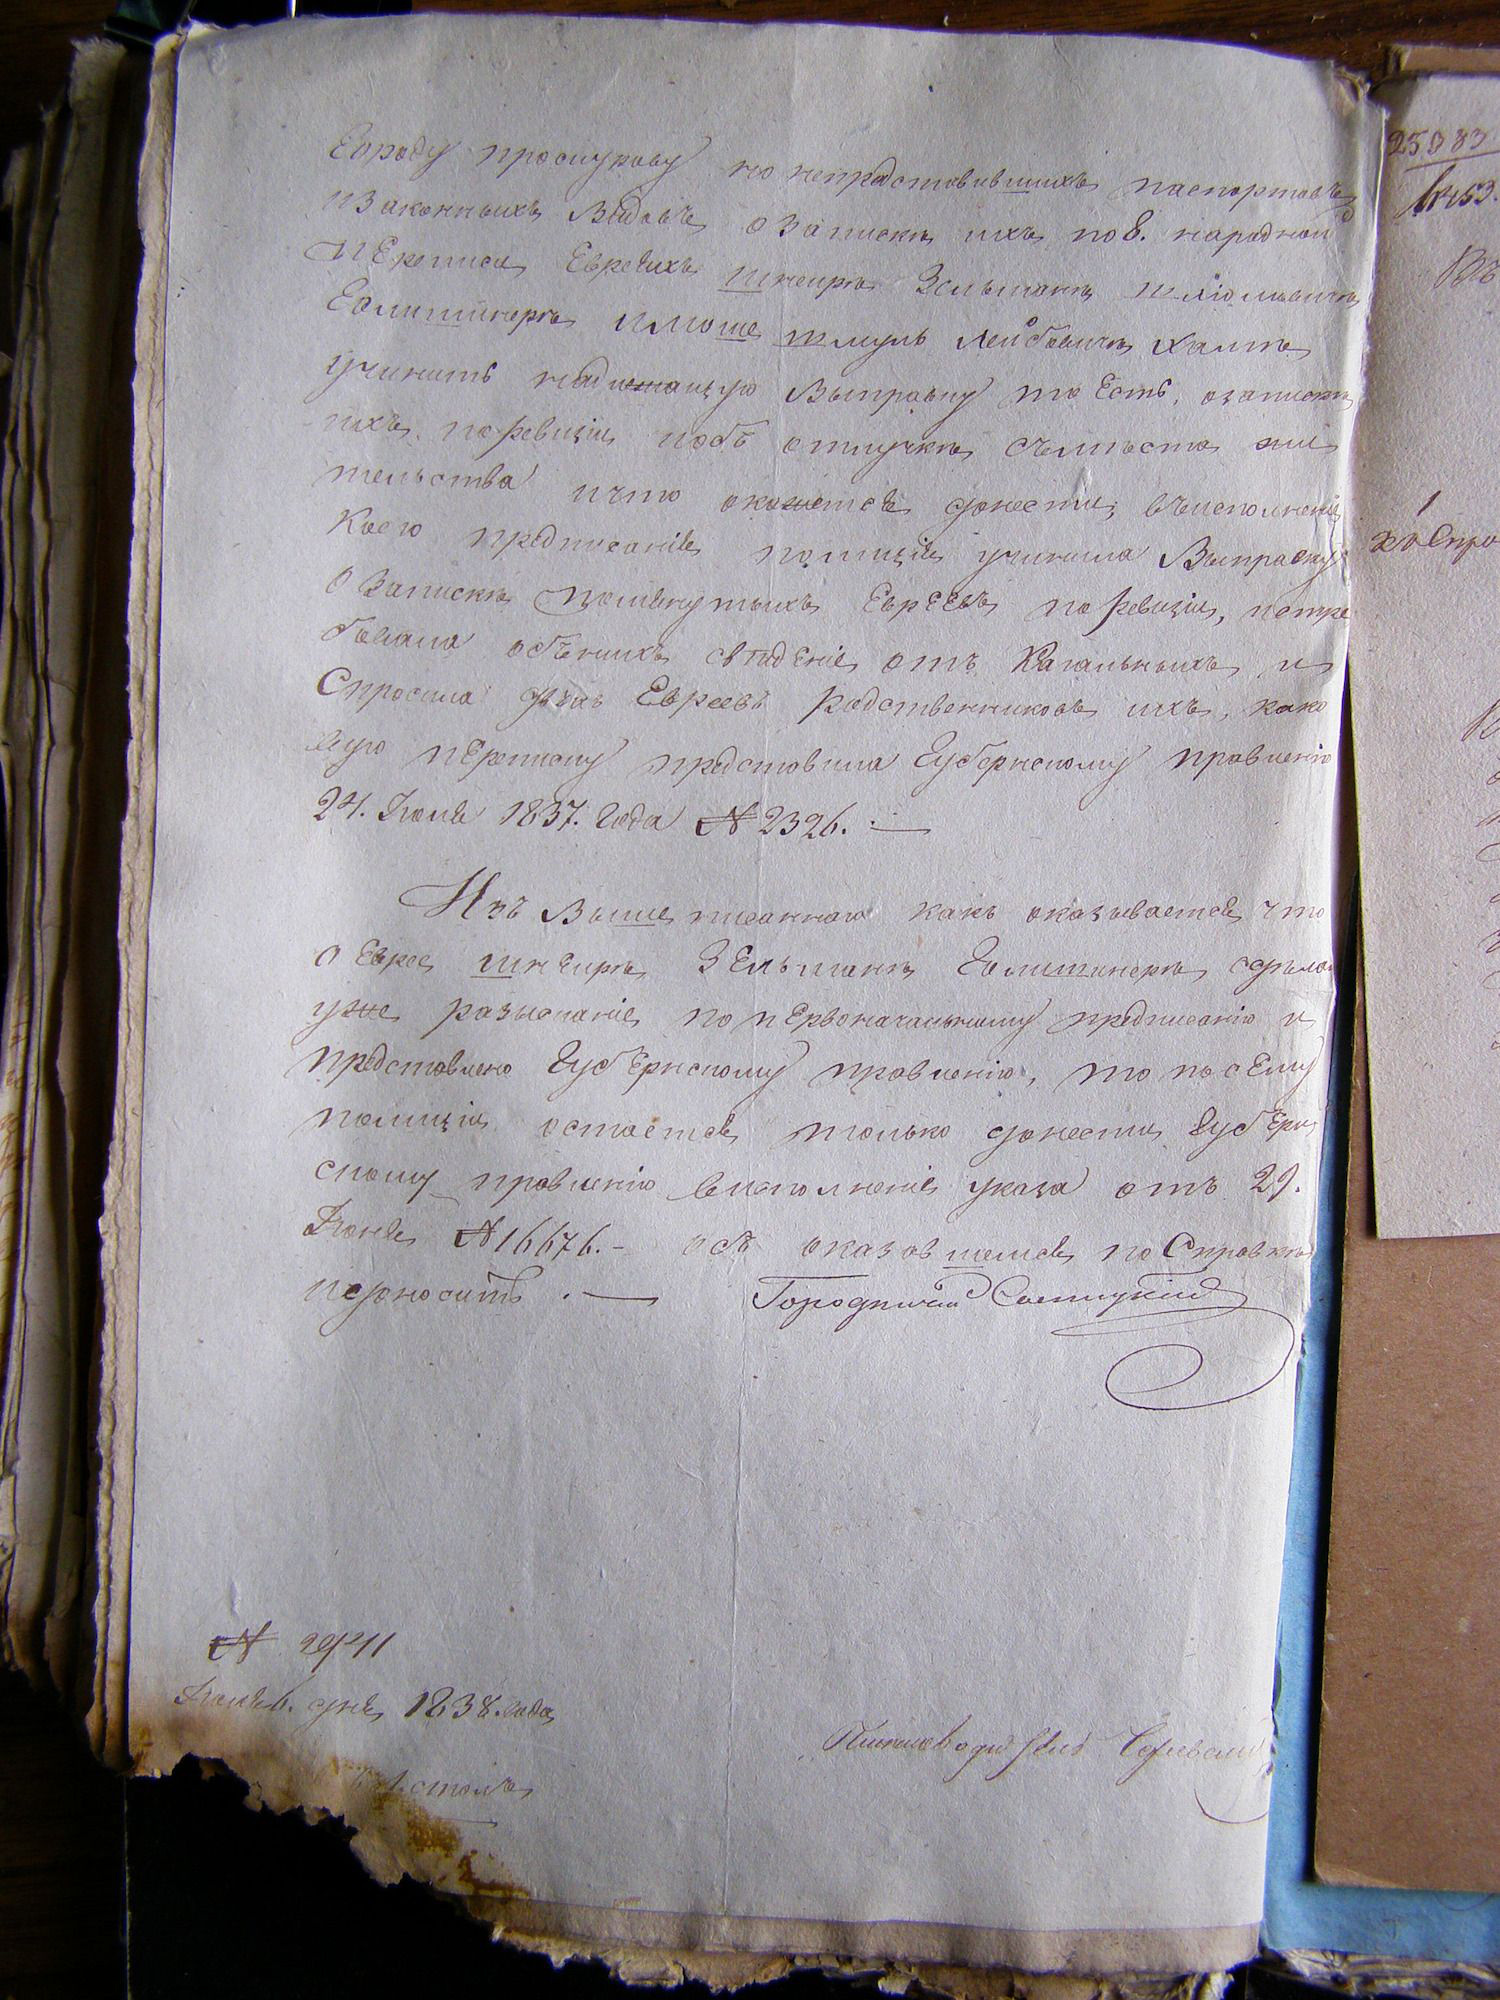 Городу Проскурову но непредставившихъ паспортовъ
изаконныхъ видовъ озапискѣ ихъ по 8. народной
переписи Евреихъ Шнеирѣ Зельманѣ
Голишинерѣ имоше шмуль Лейбовичѣ Халтѣ
учинить надлежащую выправку то есть, озапискѣ
ихъ поревизіи иобъ отлучкѣ съмѣста жи
тельства ичто окажется донести; въисполненіе
коего предписанія полиція учинила выправку
озапискѣ помянутыхъ Евреевъ поревизіи, истре
бовала объ нихъ свѣденіе отъ Кагальныхъ и
Спросила двухъ Евреевъ Родственниковъ ихъ, како
вую переписку представила Губернскому правленію
24. Іюня 1837. года № 2326.
Изъ Выше писанного какъ оказывается что
о Евреѣ Шнеирѣ Зельманѣ Голишинерѣ сдѣлано
уже разысканіе попервоначальному предписанію и
представлено Губернскому правленію, то посему
полиціи остается только донести Губерн
скому правленію висполненіе указа отъ 29.
Іюня № 16676. — объ оказавшемся по Справкѣ
идоносить. — Городничій
№
6. дня 1838. года
столъ
Письмоводитель
25983
1453.
Въ
Спра